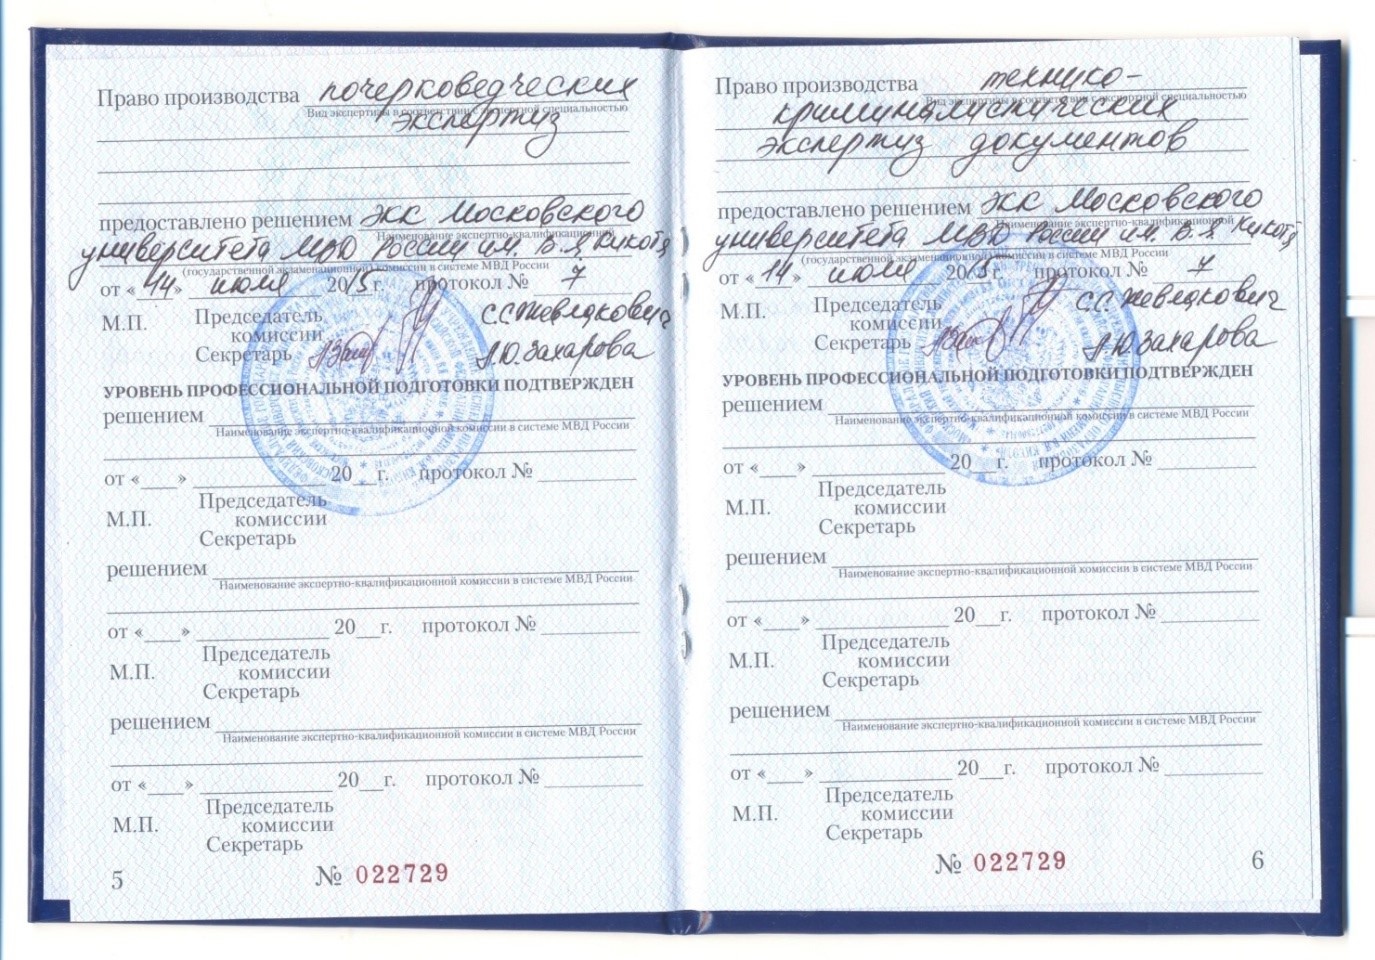 Право производства почерковедческих
Вид экспертизы в соответствии с экспертной специальностью
экспертиз
предоставлено решением ЭКК Московского
Наименование экспертно-квалификационной
университета МВД России им. В.Я. Кикотя
(государственной экзаменационной) комиссии в системе МВД России
от «14» июля 2015 г. протокол № 7
М.П. Председатель комиссии С.С. Жевлакович
Секретарь А.Ю. Захарова
УРОВЕНЬ ПРОФЕССИОНАЛЬНОЙ ПОДГОТОВКИ ПОДТВЕРЖДЕН
решением
Наименование экспертно-квалификационной комиссии в системе МВД России
от «___» ____________ 20__г. протокол №
Председатель
М.П. комиссии
Секретарь
решением
Наименование экспертно-квалификационной комиссии в системе МВД России
от «___» ____________ 20__г. протокол №
Председатель
М.П. комиссии
Секретарь
решением
Наименование экспертно-квалификационной комиссии в системе МВД России
от «___» ____________ 20__г. протокол №
Председатель
М.П. комиссии
Секретарь
5 № 022729
Право производства технико-
Вид экспертизы в соответствии с экспертной специальностью
криминалистических
экспертиз документов
предоставлено решением ЭКК Московского
Наименование экспертно-квалификационной
университета МВД России им. В.Я. Кикотя
(государственной экзаменационной) комиссии в системе МВД России
от «14» июля 2015 г. протокол № 7
М.П. Председатель комиссии С.С. Жевлакович
Секретарь А.Ю. Захарова
УРОВЕНЬ ПРОФЕССИОНАЛЬНОЙ ПОДГОТОВКИ ПОДТВЕРЖДЕН
решением
Наименование экспертно-квалификационной комиссии в системе МВД России
от «___» ____________ 20__г. протокол №
Председатель
М.П. комиссии
Секретарь
решением
Наименование экспертно-квалификационной комиссии в системе МВД России
от «___» ____________ 20__г. протокол №
Председатель
М.П. комиссии
Секретарь
решением
Наименование экспертно-квалификационной комиссии в системе МВД России
от «___» ____________ 20__г. протокол №
Председатель
М.П. комиссии
Секретарь
№ 022729 6